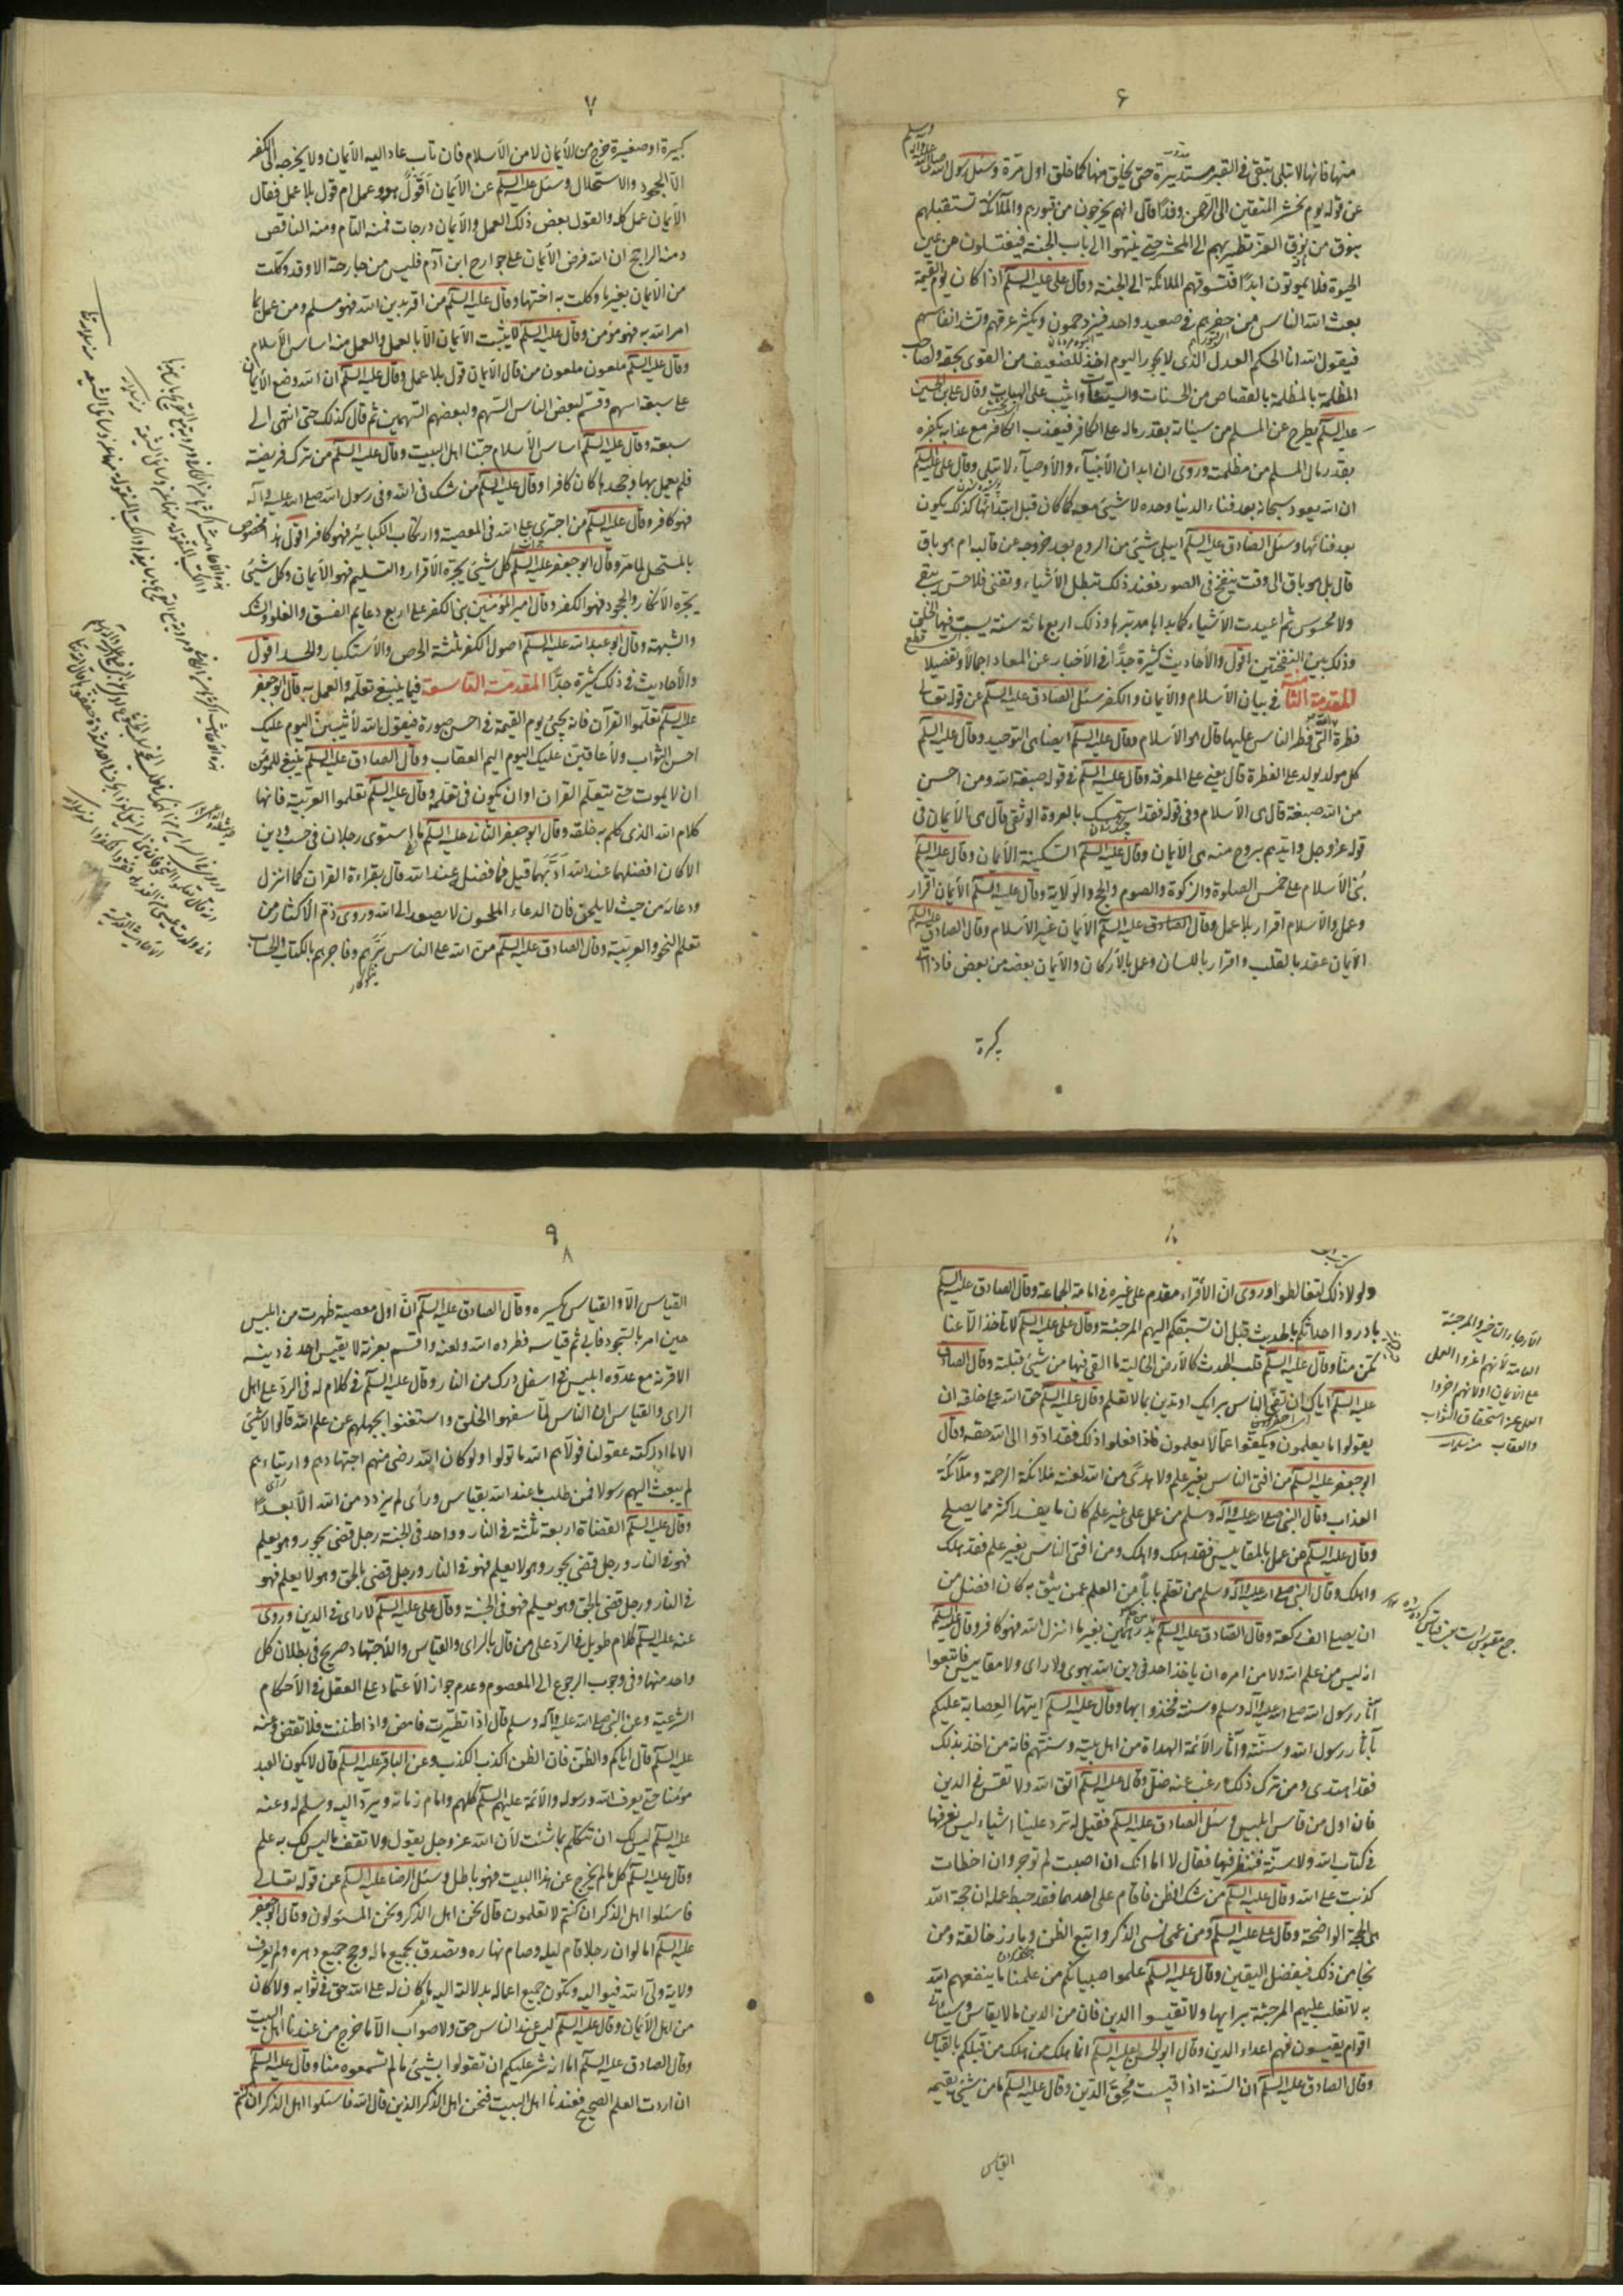 ۶
منها فانها لا تبلى تبقى فى القبر مستديرة حتى يخلق منها كما خلق اول مرة وسئل رسول الله
عن قوله يوم نحشر المتقين الى الرحمن وفدًا قال انهم يخرجون من قبورهم والملائكة تستقبلهم
بنوق من نوق العز تطير بهم الى المحشر حتى ينتهوا الى باب الجنة فيغتسلون من عين
الحيوة فلا يموتون ابدًا فتسوقهم الملائكة الى الجنة وقال على عليه السلم اذا كان يوم القيمة
بعث الله الناس من حفرهم فى صعيد واحد فيزدحمون ويكثر عرقهم وتشد انفاسهم
فيقول الله انا الحكم العدل الذى لا يجور اليوم آخذ للضعيف من القوى بحقه ولصاحب
المظلمة بالمظلمة بالقصاص من الحسنات والسيئات واثيب على الهبات وقال على بن الحسين
عليه السلم يطرح عن المسلم من سيئاته بقدر ماله على الكافر فيعذب الكافر مع عذابه بكفره
بقدر مال المسلم من مظلمته وروى ان ابدان الأنبيآء والأوصيآء لا تبلى وقال على عليه السلم
ان الله يعود سبحانه بعد فناء الدنيا وحده لا شيئ معه كما كان قبل ابتدائها كذلك يكون
بعد فنائها وسئل الصادق عليه السلم ايبلى شيئ من الروح بعد خروجه عن قالبه ام هو باق
قال بل هو باق الى وقت ينفخ فى الصور فعند ذلك تبطل الأشياء وتفنى فلا حس يبقى
ولا محسوس ثم اعيدت الأشياء كما بداها مدبرها وذلك اربع مائة سنة يسبت فيها الخلق
وذلك بين النفختين اقول والأحاديث كثيرة جدًّا فى الأخبار عن المعاد اجمالاً وتفصيلا
المقدمة الثامنة فى بيان الأسلام والأيمان والكفر سئل الصادق عليه السلم عن قوله تعالى
فطرة الله التى فطر الناس عليها قال هو الأسلام وقال عليه السلم ايضا هى التوحيد وقال عليه السلم
كل مولود يولد على الفطرة قال يعنى على المعرفة وقال عليه السلم فى قوله صبغة الله ومن احسن
من الله صبغة قال هى الأسلام وفى قوله فقد استمسك بالعروة الوثقى قال هى الأيمان فى
قوله عز وجل وايدهم بروح منه هى الأيمان وقال عليه السلم السكينة الأيمان وقال عليه السلم
بنى الأسلام على خمس الصلوة والزكوة والصوم والحج والولاية وقال عليه السلم الأيمان اقرار
وعمل والأسلام اقرار بلا عمل وقال الصادق عليه السلم الأيمان غير الأسلام وقال الصادق عليه السلم
الأيمان عقد بالقلب واقرار باللسان وعمل بالأركان والأيمان بعضه من بعض فاذا اتى
كبيرة
۷
كبيرة او صغيرة خرج من الأيمان لا من الأسلام فان تاب عاد اليه الأيمان ولا يخرجه الى الكفر
الا الجحود والاستحلال وسئل عليه السلم عن الأيمان أقولٌ هو وعمل ام قول بلا عمل فقال
الأيمان عمل كله والقول بعض ذلك العمل والأيمان درجات فمنه التام ومنه الناقص
ومنه الراجح ان الله فرض الأيمان على جوارح ابن آدم فليس من جارحة الا وقد وكلت
من الأيمان بغير ما وكلت به اختها وقال عليه السلم من اقر بدين الله فهو مسلم ومن عمل بما
امر الله به فهو مؤمن وقال عليه السلم لا يثبت الأيمان الا بالعمل والعمل منه اساس الأسلام
وقال عليه السلم ملعون ملعون من قال الأيمان قول بلا عمل وقال عليه السلم ان الله وضع الأيمان
على سبعة اسهم وقسم لبعض الناس السهم ولبعضهم السهمين ثم قال كذلك حتى انتهى الى
سبعة وقال عليه السلم اساس الأسلام حبنا اهل البيت وقال عليه السلم من ترك فريضة
فلم يعمل بها وجحدها كان كافرا وقال عليه السلم من شك فى الله وفى رسول الله صلى الله عليه وآله
فهو كافر وقال عليه السلم من اجترى على الله فى المعصية وارتكاب الكبائر فهو كافر اقول هذا مخصوص
بالمستحل لما مر وقال ابو جعفر عليه السلم كل شيئ يجره الأقرار والتسليم فهو الأيمان وكل شيئ
يجره الأنكار والجحود فهو الكفر وقال امير المؤمنين بنى الكفر على اربع دعايم الفسق والغلو والشك
والشبهة وقال ابو عبد الله عليه السلم اصول الكفر ثلثة الحرص والأستكبار والحسد اقول
والأحاديث فى ذلك كثيرة جدًّا المقدمة التاسعة فيما ينبغى تعلمه والعمل به قال ابو جعفر
عليه السلم تعلموا القرآن فانه يجيئ يوم القيمة فى احسن صورة فيقول الله لأثيبن اليوم عليك
احسن الثواب ولأعاقبن عليك اليوم اليم العقاب وقال الصادق عليه السلم ينبغى للمؤمن
ان لا يموت حتى يتعلم القران او ان يكون فى تعلمه وقال عليه السلم تعلموا العربية فانها
كلام الله الذى كلم به خلقه وقال ابو جعفر الثانى عليه السلم ما استوى رجلان فى حسب ودين
الا كان افضلهما عند الله آدبهما قيل فما فضله عند الله قال بقراءة القران كما انزل
ودعائه من حيث لا يلحن فان الدعاء الملحون لا يصعد الى الله وروى ذم الأكثار من
تعلم النحو والعربية وقال الصادق عليه السلم من الله على الناس برهم وفاجرهم بالكتاب والحساب
نيكوكار
۸
ولولا ذلك لتغالطوا وروى ان الأقرء مقدم على غيره فى امامة الجماعة وقال الصادق عليه السلم
بادروا احداثكم بالحديث قبل ان تسبقكم اليهم المرجئة وقال على عليه السلم لا تأخذ الا عنا
تكن منا وقال عليه السلم قلب الحدث كالأرض الخالية ما القى فيها من شيئ قبلته وقال الصادق
عليه السلم اياك ان تفتى الناس برايك او تدين بما لا تعلم وقال عليه السلم حق الله على خلقه ان
يقولوا ما يعلمون ويكفوا عما لا يعلمون فاذا فعلوا ذلك فقد ادوا الى الله حقه وقال
ابو جعفر عليه السلم من افتى الناس بغير علم ولا هدًى من الله لعنته ملائكة الرحمة وملائكة
العذاب وقال النبى صلى الله عليه وآله وسلم من عمل على غير علم كان ما يفسد اكثر مما يصلح
وقال عليه السلم من عمل بالمقاييس فقد هلك واهلك ومن افتى الناس بغير علم فقد هلك
واهلك وقال النبى صلى الله عليه وآله وسلم من تعلم بابًا من العلم عمن يثق به كان افضل من
ان يصلى الف ركعة وقال الصادق عليه السلم من حكم بدرهمين بغير ما انزل الله فهو كافر وقال عليه السلم
انه ليس من علم الله ولا من امره ان ياخذ احد فى دين الله بهوى ولا راى ولا مقاييس فاتبعوا
آثار رسول الله صلى الله عليه وآله وسلم وسنته فخذوا بها وقال عليه السلم ايتها العصابة عليكم
بآثار رسول الله وسنته وآثار الأئمة الهداة من اهل بيته وسنتهم فانه من اخذ بذلك
فقد اهتدى ومن ترك ذلك ورغب عنه ضل وقال عليه السلم اتق الله ولا تقس فى الدين
فان اول من قاس ابليس وسئل الصادق عليه السلم فقيل له ترد علينا اشياء ليس نعرفها
فى كتاب الله ولا سنة فننظر فيها فقال لا اما انك ان اصبت لم توجر وان اخطات
كذبت على الله وقال عليه السلم من شك او ظن فاقام على احدهما فقد حبط عمله ان حجة الله
هى الحجة الواضحة وقال على عليه السلم ومن عمى نسى الذكر واتبع الظن وبارز خالقه ومن
نجا من ذلك فبفضل اليقين وقال عليه السلم علموا صبيانكم من علمنا ما ينفعهم الله
به لا تغلب عليهم المرجئة برايها ولا تقيسوا الدين فان من الدين ما لا يقاس وسياتى
اقوام يقيسون فهم اعداء الدين وقال ابو الحسن عليه السلم انما هلك من هلك من قبلكم بالقياس
وقال الصادق عليه السلم ان السنة اذا قيست محق الدين وقال عليه السلم ما من شيئ يقيمه
القياس
الأرجاء التاخير والمرجئة
العامة لأنهم اخروا العمل
على الأيمان او لانهم اخروا
العمل عن استحقاق الثواب
والعقاب
۹
۸
القياس الا والقياس يكسره وقال الصادق عليه السلم انّ اول معصية ظهرت من ابليس
حين امر بالسجود فابى ثم قياسه فطرده الله ولعنه واقسم بعزته لا يقيس احد فى دينه
الا قرنه مع عدوه ابليس فى اسفل درك من النار وقال عليه السلم فى كلام له فى الرد على اهل
الراى والقياس ان الناس لما سفهوا الخلق واستغنوا بجهلهم عن علم الله قالوا لا شيئ
الا ما ادركته عقولنا فولاهم الله ما تولوا ولو كان الله رضى منهم اجتهادهم وارتياءهم
لم يبعث اليهم رسولا فمن طلب ما عند الله بقياس ورأى لم يزدد من الله الا بعدًا
وقال عليه السلم القضاة اربعة ثلثة فى النار وواحد فى الجنة رجل قضى بجور وهو يعلم
فهو فى النار ورجل قضى بجور وهو لا يعلم فهو فى النار ورجل قضى بالحق وهو لا يعلم فهو
فى النار ورجل قضى بالحق وهو يعلم فهو فى الجنة وقال على عليه السلم لا راى فى الدين وروى
عنه عليه السلم كلام طويل فى الرد على من قال بالراى والقياس والأجتهاد صريح فى بطلان كل
واحد منها وفى وجوب الرجوع الى المعصوم وعدم جواز الأعتماد على العقل فى الأحكام
الشرعية وعن النبى صلى الله عليه وآله وسلم قال اذا تطيرت فامض واذا ظننت فلا تقض وعنه
عليه السلم قال اياكم والظن فان الظن اكذب الكذب وعن الباقر عليه السلم قال لا يكون العبد
مؤمنا حتى يعرف الله ورسوله والأئمة عليهم السلم كلهم وامام زمانه ويرد اليه ويسلم له وعنه
عليه السلم ليس لك ان تتكلم بما شئت لأن الله عز وجل يقول ولا تقف ما ليس لك به علم
وقال عليه السلم كل ما لم يخرج عن هذا البيت فهو باطل وسئل الرضا عليه السلم عن قوله تعالى
فاسئلوا اهل الذكر ان كنتم لا تعلمون قال نحن اهل الذكر ونحن المسئولون وقال ابو جعفر
عليه السلم اما لو ان رجلا قام ليله وصام نهاره وتصدق بجميع ماله وحج جميع دهره ولم يعرف
ولاية ولى الله فيواليه وتكون جميع اعماله بدلالته اليه ما كان له على الله حق فى ثوابه ولا كان
من اهل الأيمان وقال عليه السلم ليس عند الناس حق ولا صواب الا ما خرج من عندنا اهل البيت
وقال الصادق عليه السلم اما انه شر عليكم ان تقولوا بشيئ ما لم تسمعوه منا وقال عليه السلم
ان اردت العلم الصحيح فعندنا اهل البيت فنحن اهل الذكر الذين قال الله فاسئلوا اهل الذكر ان كنتم